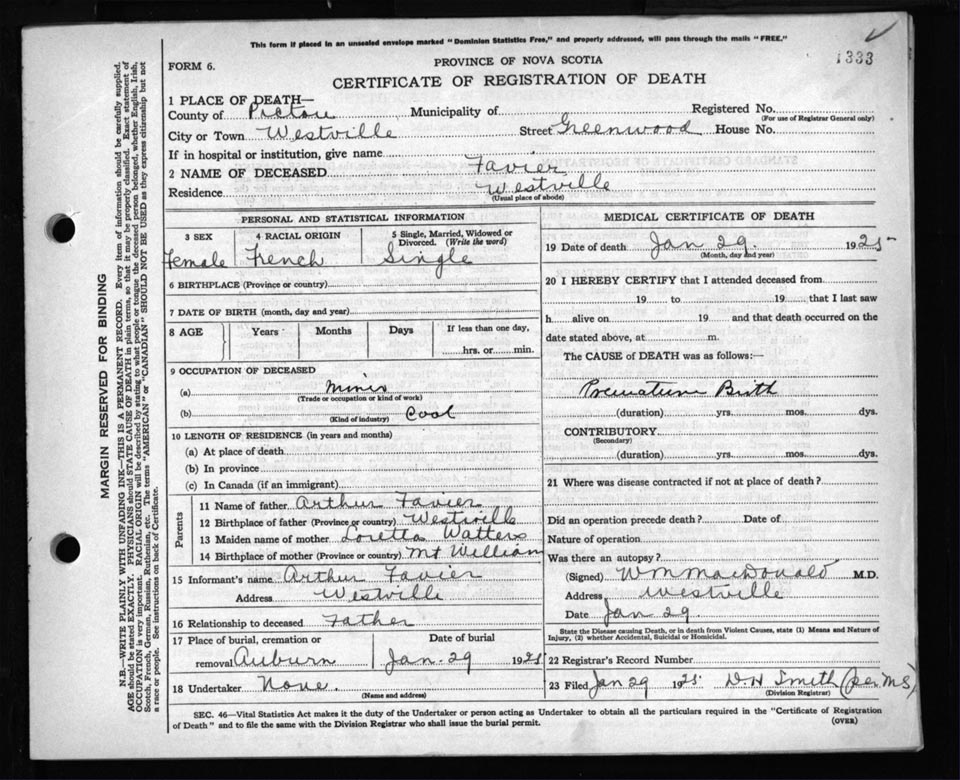 This form if placed in an unsealed envelope marked "Dominion Statistics Free," and properly addressed, will pass through the mails "FREE."
1333
FORM 6.
PROVINCE OF NOVA SCOTIA
CERTIFICATE OF REGISTRATION OF DEATH
1 PLACE OF DEATH—
County of Pictou Municipality of Registered No.
(For use of Registrar General only)
City or Town Westville Street Greenwood House No.
If in hospital or institution, give name
2 NAME OF DECEASED Favier
Residence Westville
(Usual place of abode)
PERSONAL AND STATISTICAL INFORMATION
3 SEX 4 RACIAL ORIGIN 5 Single, Married, Widowed or Divorced. (Write the word)
Female French Single
6 BIRTHPLACE (Province or country)
7 DATE OF BIRTH (month, day and year)
8 AGE Years Months Days If less than one day,
hrs. or min.
9 OCCUPATION OF DECEASED
(a) Miner
(Trade or occupation or kind of work)
(b) Coal
(Kind of industry)
10 LENGTH OF RESIDENCE (in years and months)
(a) At place of death
(b) In province
(c) In Canada (if an immigrant)
Parents
11 Name of father Arthur Favier
12 Birthplace of father (Province or country) Westville
13 Maiden name of mother Loretta Watters
14 Birthplace of mother (Province or country) Mt William
15 Informant's name Arthur Favier
Address Westville
16 Relationship to deceased Father
17 Place of burial, cremation or Date of burial
removal Auburn Jan. 29 1925
18 Undertaker None.
(Name and address)
MEDICAL CERTIFICATE OF DEATH
19 Date of death Jan 29. 1925
(Month, day and year)
20 I HEREBY CERTIFY that I attended deceased from
19 to 19 that I last saw
h alive on 19 and that death occurred on the
date stated above, at m.
The CAUSE of DEATH was as follows:—
Premature Birth
(duration) yrs. mos. dys.
CONTRIBUTORY
(Secondary)
(duration) yrs. mos. dys.
21 Where was disease contracted if not at place of death?
Did an operation precede death? Date of
Nature of operation
Was there an autopsy?
(Signed) Wm MacDonald M.D.
Address Westville
Date Jan 29
State the Disease causing Death, or in death from Violent Causes, state (1) Means and Nature of
Injury, (2) whether Accidental, Suicidal or Homicidal.
22 Registrar's Record Number
23 Filed Jan 29 1925 D H Smith (per M S)
(Division Registrar)
SEC. 46—Vital Statistics Act makes it the duty of the Undertaker or person acting as Undertaker to obtain all the particulars required in the "Certificate of Registration
of Death" and to file the same with the Division Registrar who shall issue the burial permit.
(OVER)
MARGIN RESERVED FOR BINDING
N.B.—WRITE PLAINLY WITH UNFADING INK—THIS IS A PERMANENT RECORD. Every item of information should be carefully supplied.
AGE should be stated EXACTLY. PHYSICIANS should STATE CAUSE OF DEATH in plain terms, so that it may be properly classified. Exact statement of
OCCUPATION is very important. RACIAL ORIGIN will be described by stating to what people or tongue the deceased person belonged, whether English, Irish,
Scotch, French, German, Russian, Ruthenian, etc. The terms "AMERICAN" or "CANADIAN" SHOULD NOT BE USED as they express citizenship but not
a race or people. See instructions on back of Certificate.